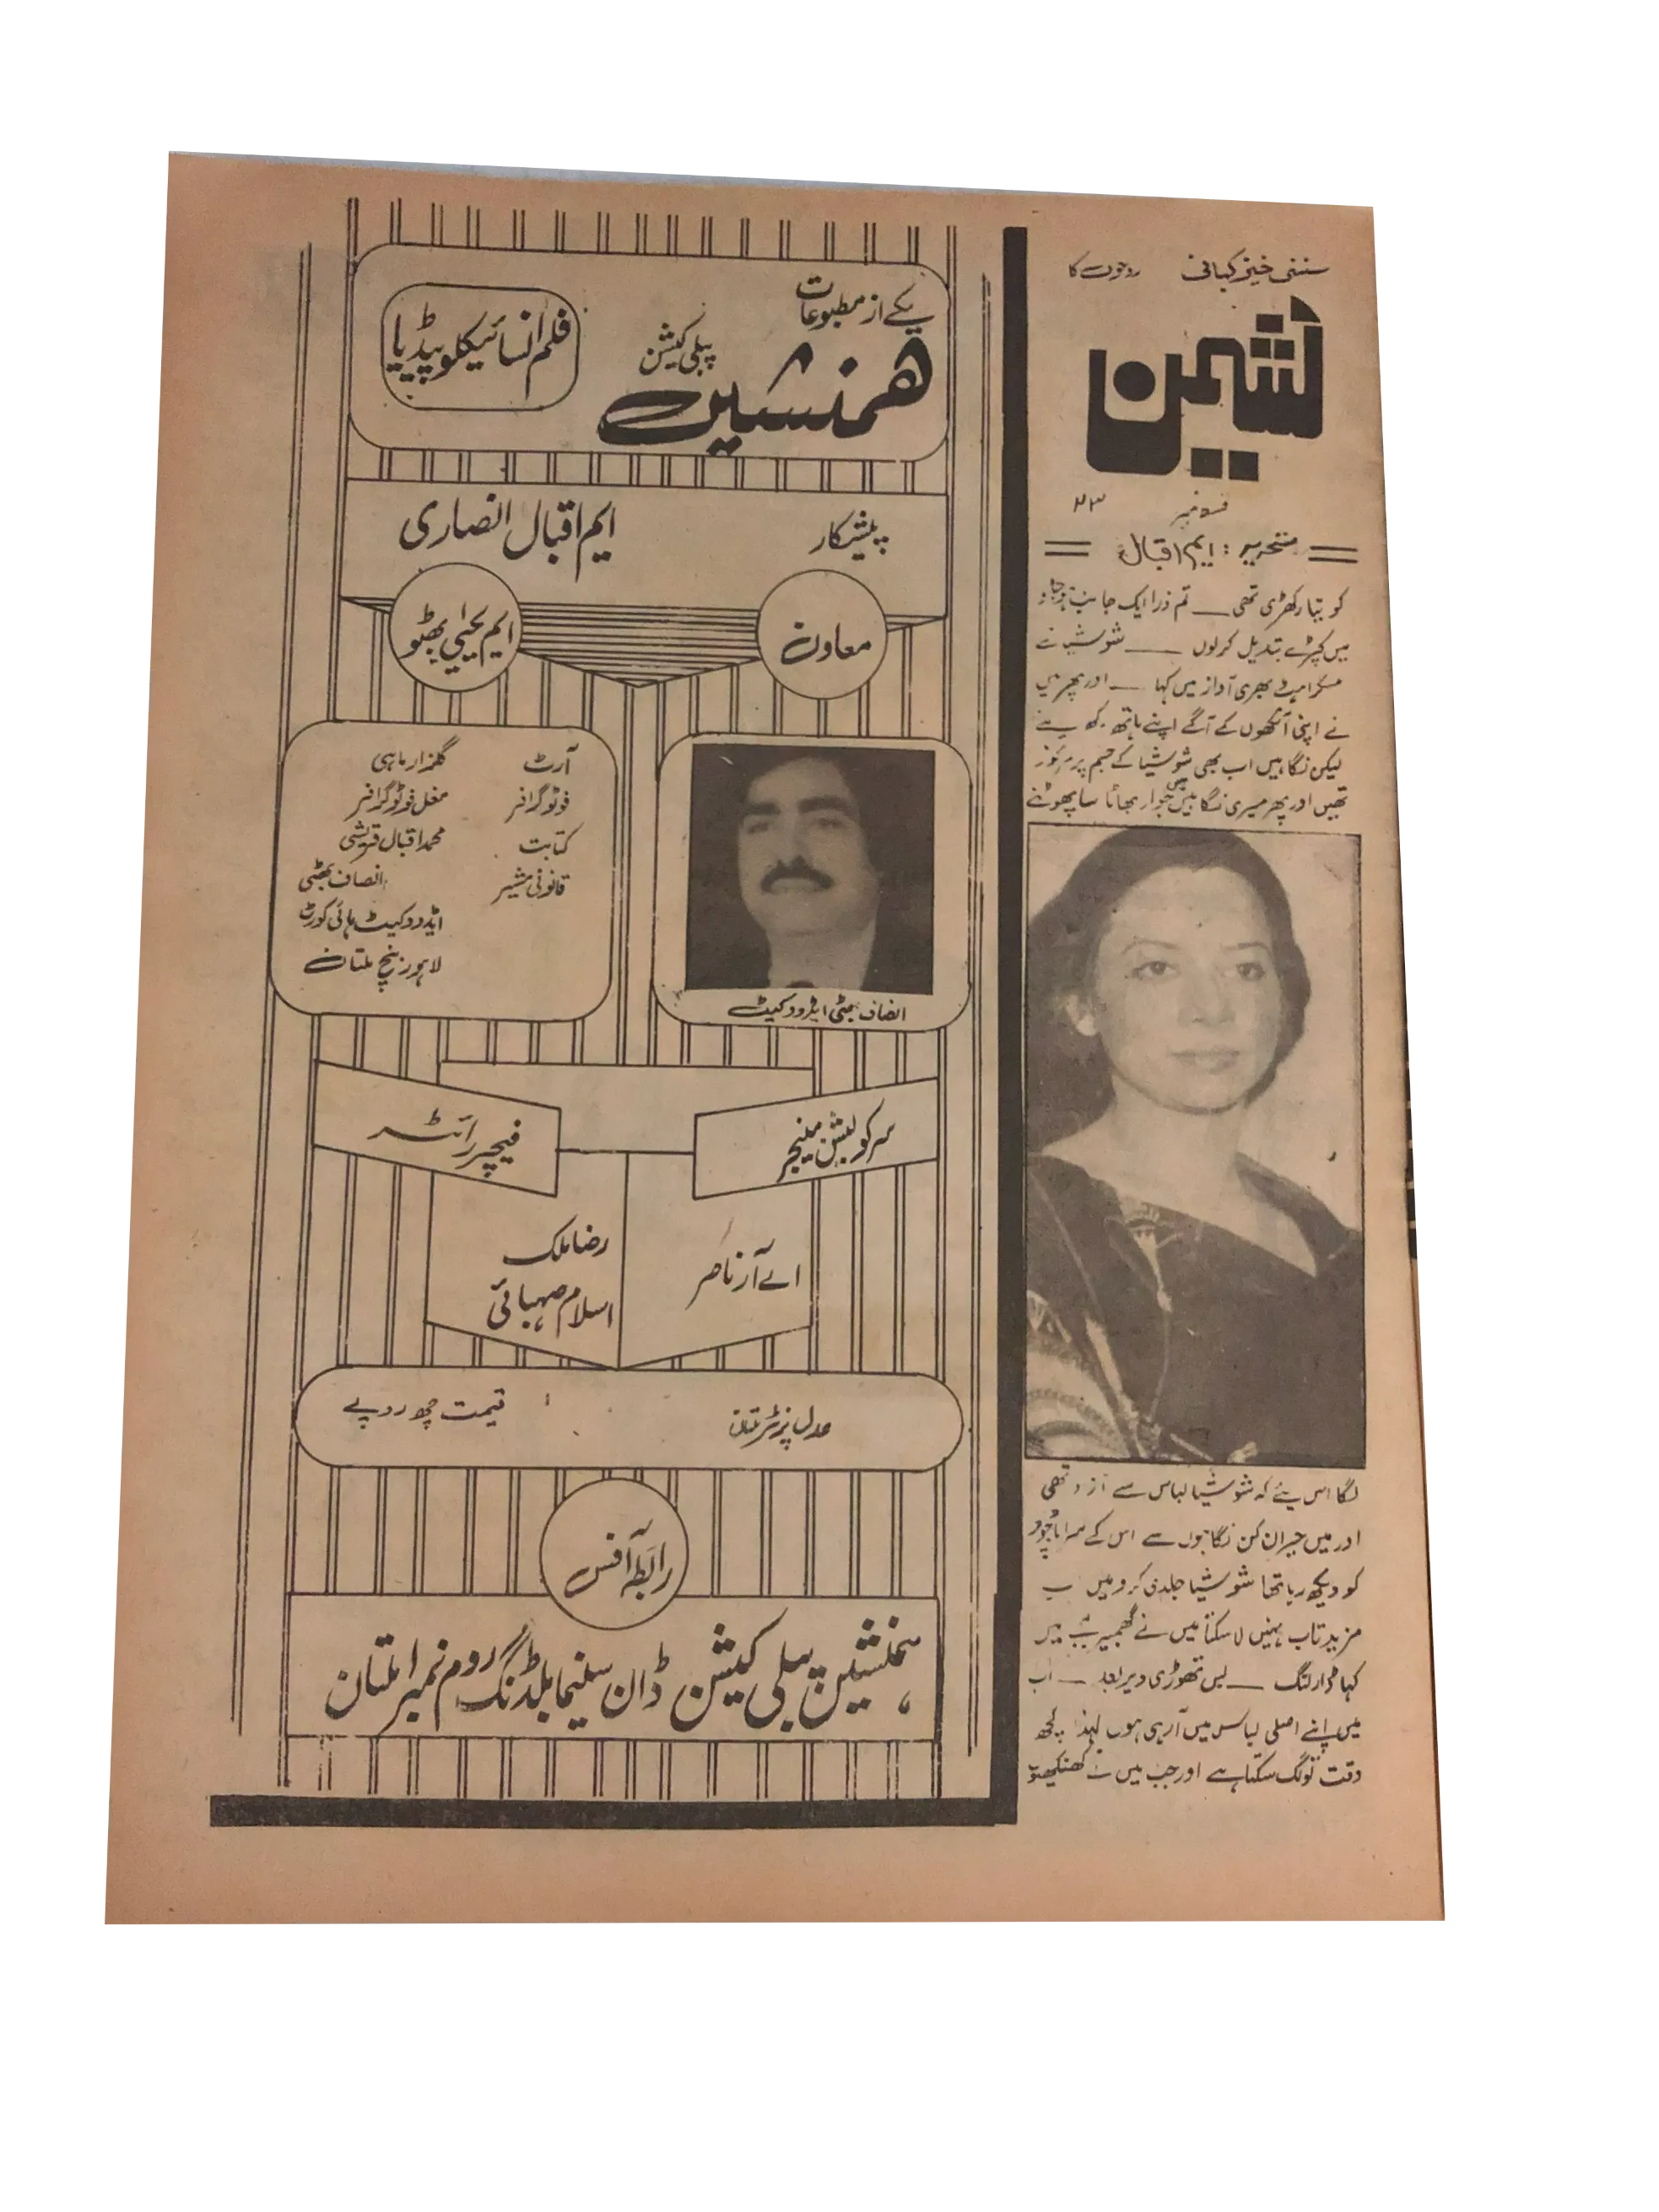 سنسنی خیز کہانی روحوں کا
نشیمن
قسط نمبر ۲۳
تحریر : ایم اقبال
کو تیار کھڑی تھی — تم ذرا ایک جانب ہو جاؤ
میں کپڑے تبدیل کرلوں — شوشیا نے
مسکراہٹ بھری آواز میں کہا — اور پھر میں
نے اپنی آنکھوں کے آگے اپنے ہاتھ رکھ لئے
لیکن نگاہیں اب بھی شوشیا کے جسم پر مرکوز
تھیں اور پھر میری نگاہیں میں جوار بھاٹا سا پھوٹنے
لگا اس لئے کہ شوشیا لباس سے آزاد تھی
اور میں حیران کن نگاہوں سے اس کے سراپا وجود
کو دیکھ رہا تھا شوشیا جلدی کرو میں اب
مزید تاب نہیں لا سکتا میں نے گھمبیر میں
کہا ڈارلنگ — بس تھوڑی دیر بعد — اب
میں اپنے اصلی لباس میں آرہی ہوں لہذا کچھ
وقت تو لگ سکتا ہے اور جب میں نے
یکے از مطبوعات
ھمنشین پبلی کیشن
فلم انسائیکلوپیڈیا
پیشکار ایم اقبال انصاری
معاون ایم یحییٰ بھٹو
آرٹ گلزار ماہی
فوٹوگرافر مغل فوٹوگرافر
کتابت محمد اقبال قریشی
قانونی مشیر انصاف بھٹی
ایڈووکیٹ ہائی کورٹ
لاہور بنچ ملتان
انصاف بھٹی ایڈووکیٹ
سرکولیشن مینجر
اے آر ناصر
فیچر رائٹر
رضا ملک
اسلام صہبائی
عدل پرنٹرز ملتان
قیمت چھ روپے
رابطہ آفس
ہمنشین پبلی کیشن ڈان سنیما بلڈنگ روم نمبر ۱ ملتان